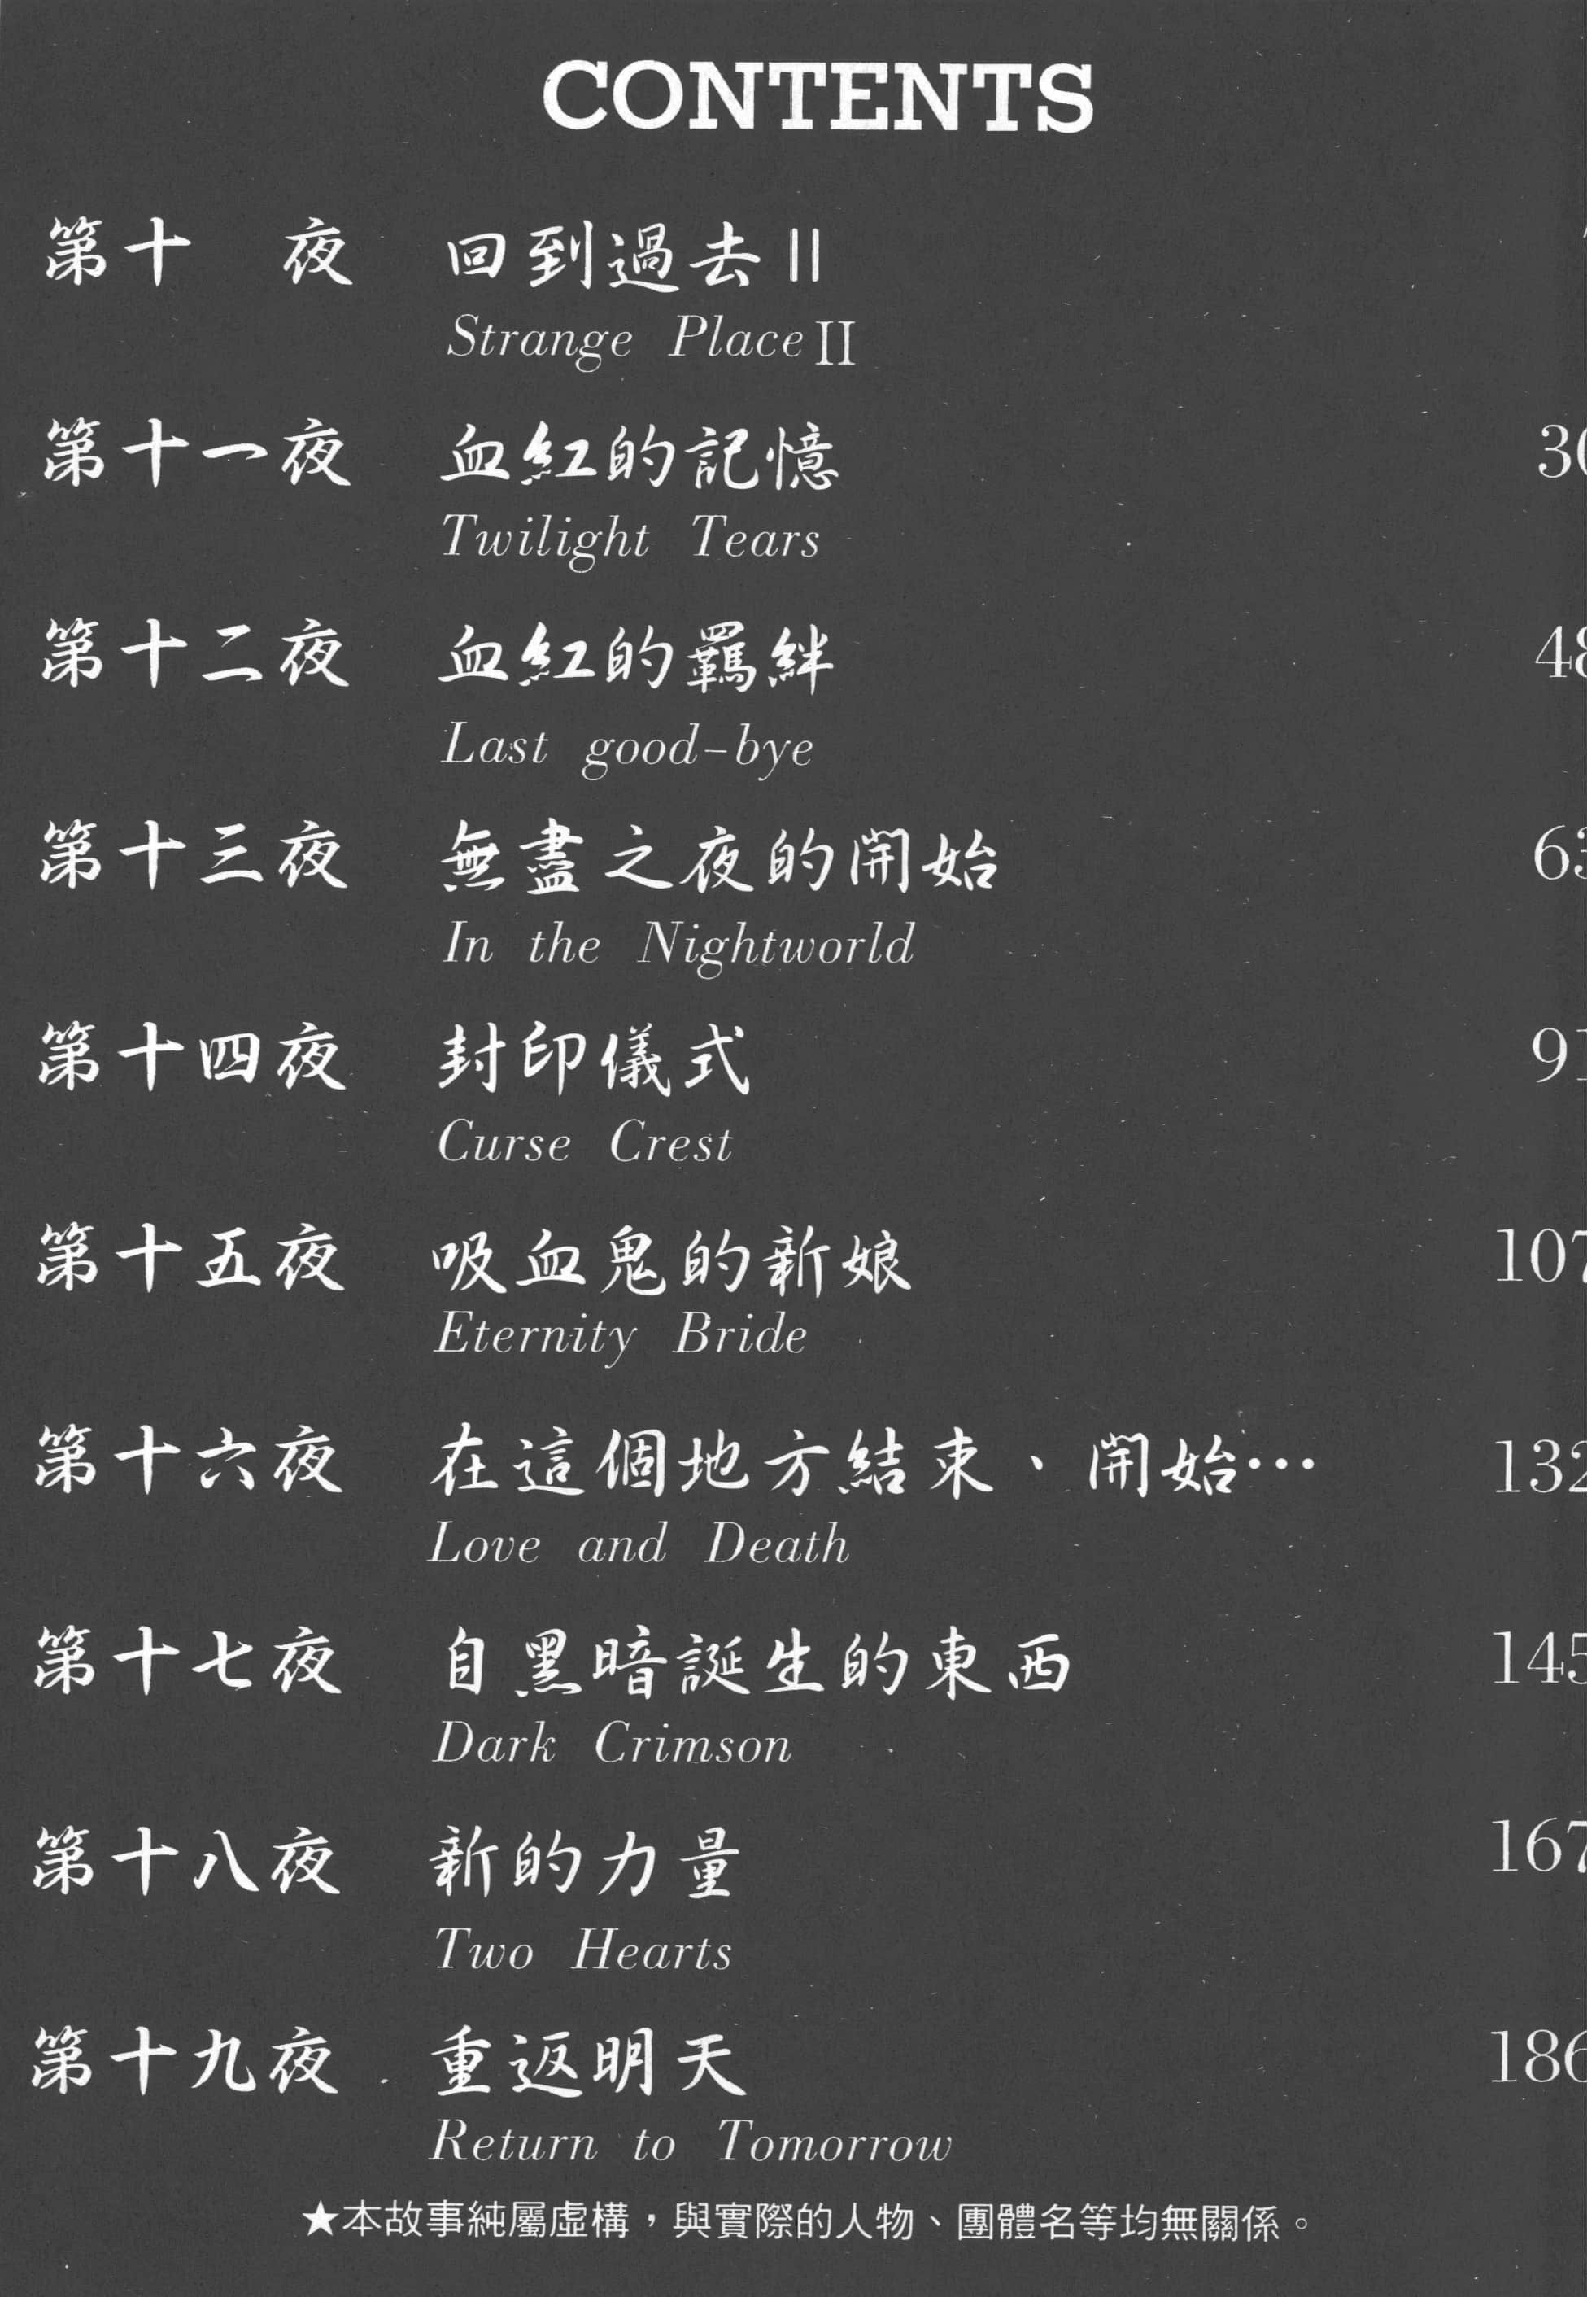 CONTENTS
第十　夜　回到過去II
Strange Place II
第十一夜　血紅的記憶　30
Twilight Tears
第十二夜　血紅的羈絆　48
Last good-bye
第十三夜　無盡之夜的開始　63
In the Nightworld
第十四夜　封印儀式　91
Curse Crest
第十五夜　吸血鬼的新娘　107
Eternity Bride
第十六夜　在這個地方結束、開始…　132
Love and Death
第十七夜　自黑暗誕生的東西　145
Dark Crimson
第十八夜　新的力量　167
Two Hearts
第十九夜　重返明天　186
Return to Tomorrow
★本故事純屬虛構，與實際的人物、團體名等均無關係。